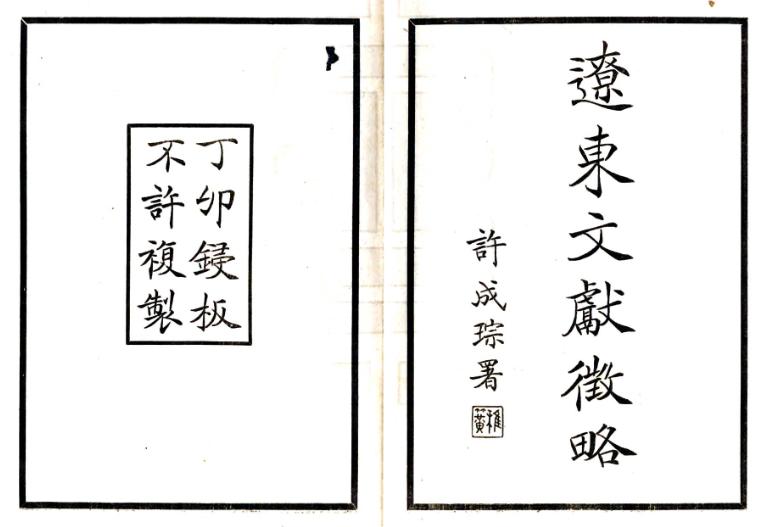 遼東文獻徵略
許成琮署
丁卯鋟板
不許複製